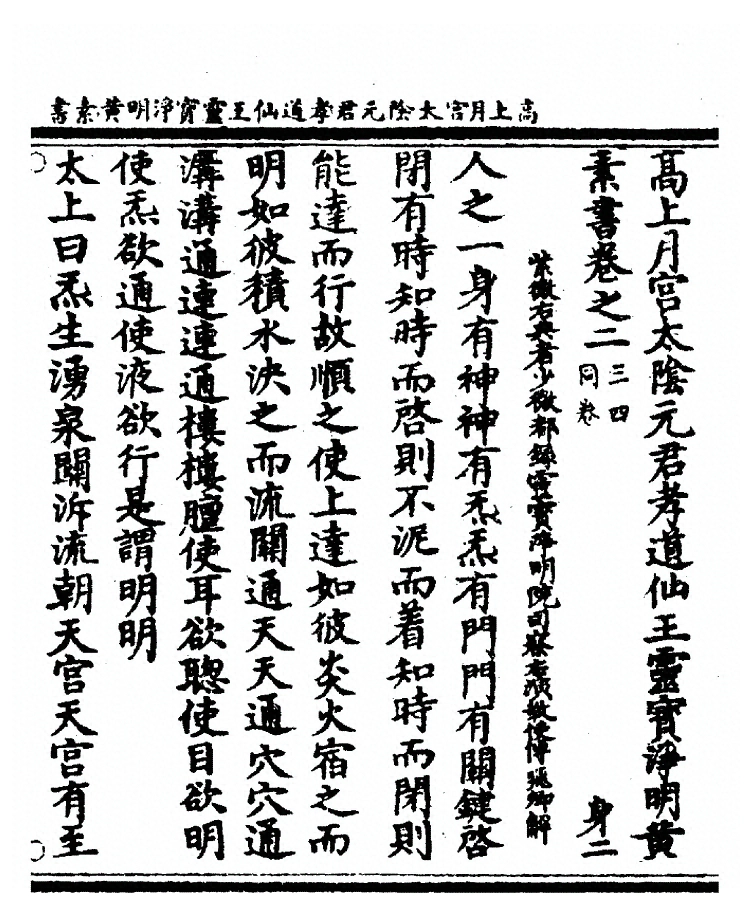 高上月宮太陰元君孝道仙王靈寶淨明黃素書
高上月宮太陰元君孝道仙王靈寶淨明黃
素書卷之二 三四同卷 身二
紫微右典者少微都錄靈寶淨明院司察右演教使傅飛卿解
人之一身有神神有炁炁有門門有關鍵啓
閉有時知時而啓則不泥而着知時而閉則
能達而行故順之使上達如彼炎火宿之而
明如彼積水決之而流關通天天通穴穴通
溝溝通連連通樓樓膻使耳欲聰使目欲明
使炁欲通使液欲行是謂明明
太上曰炁生湧泉關泝流朝天宮天宮有至